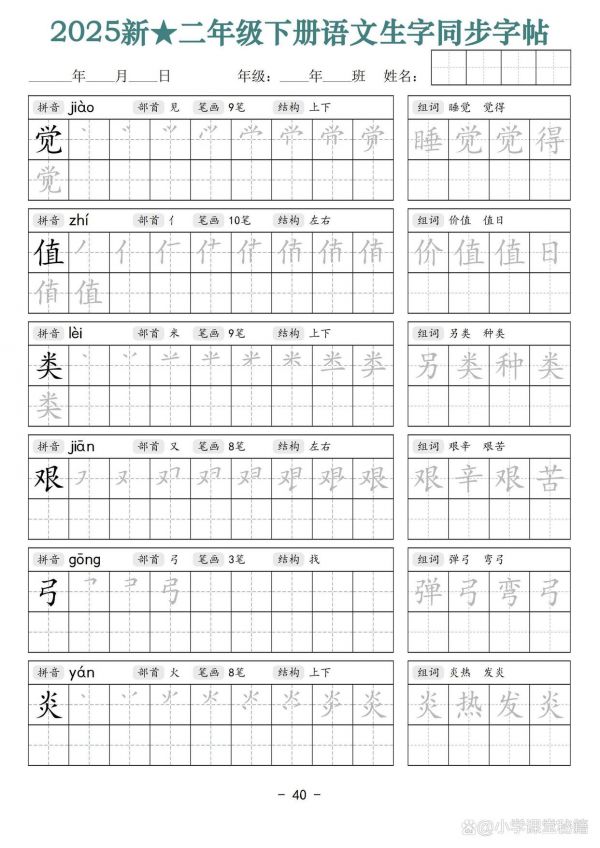 2025新★二年级下册语文生字同步字帖
____年___月___日 年级：___年___班 姓名：
拼音 jiào 部首 见 笔画 9笔 结构 上下
觉
觉
组词 睡觉 觉得
睡觉觉得
拼音 zhí 部首 亻 笔画 10笔 结构 左右
值
值
组词 价值 值日
价值值日
拼音 lèi 部首 米 笔画 9笔 结构 上下
类
类
组词 另类 种类
另类种类
拼音 jiān 部首 又 笔画 8笔 结构 左右
艰 艰
组词 艰辛 艰苦
艰辛艰苦
拼音 gōng 部首 弓 笔画 3笔 结构 找
弓 弓
组词 弹弓 弯弓
弹弓弯弓
拼音 yán 部首 火 笔画 8笔 结构 上下
炎 炎
组词 炎热 发炎
炎热发炎
- 40 -
@小学课堂秘籍